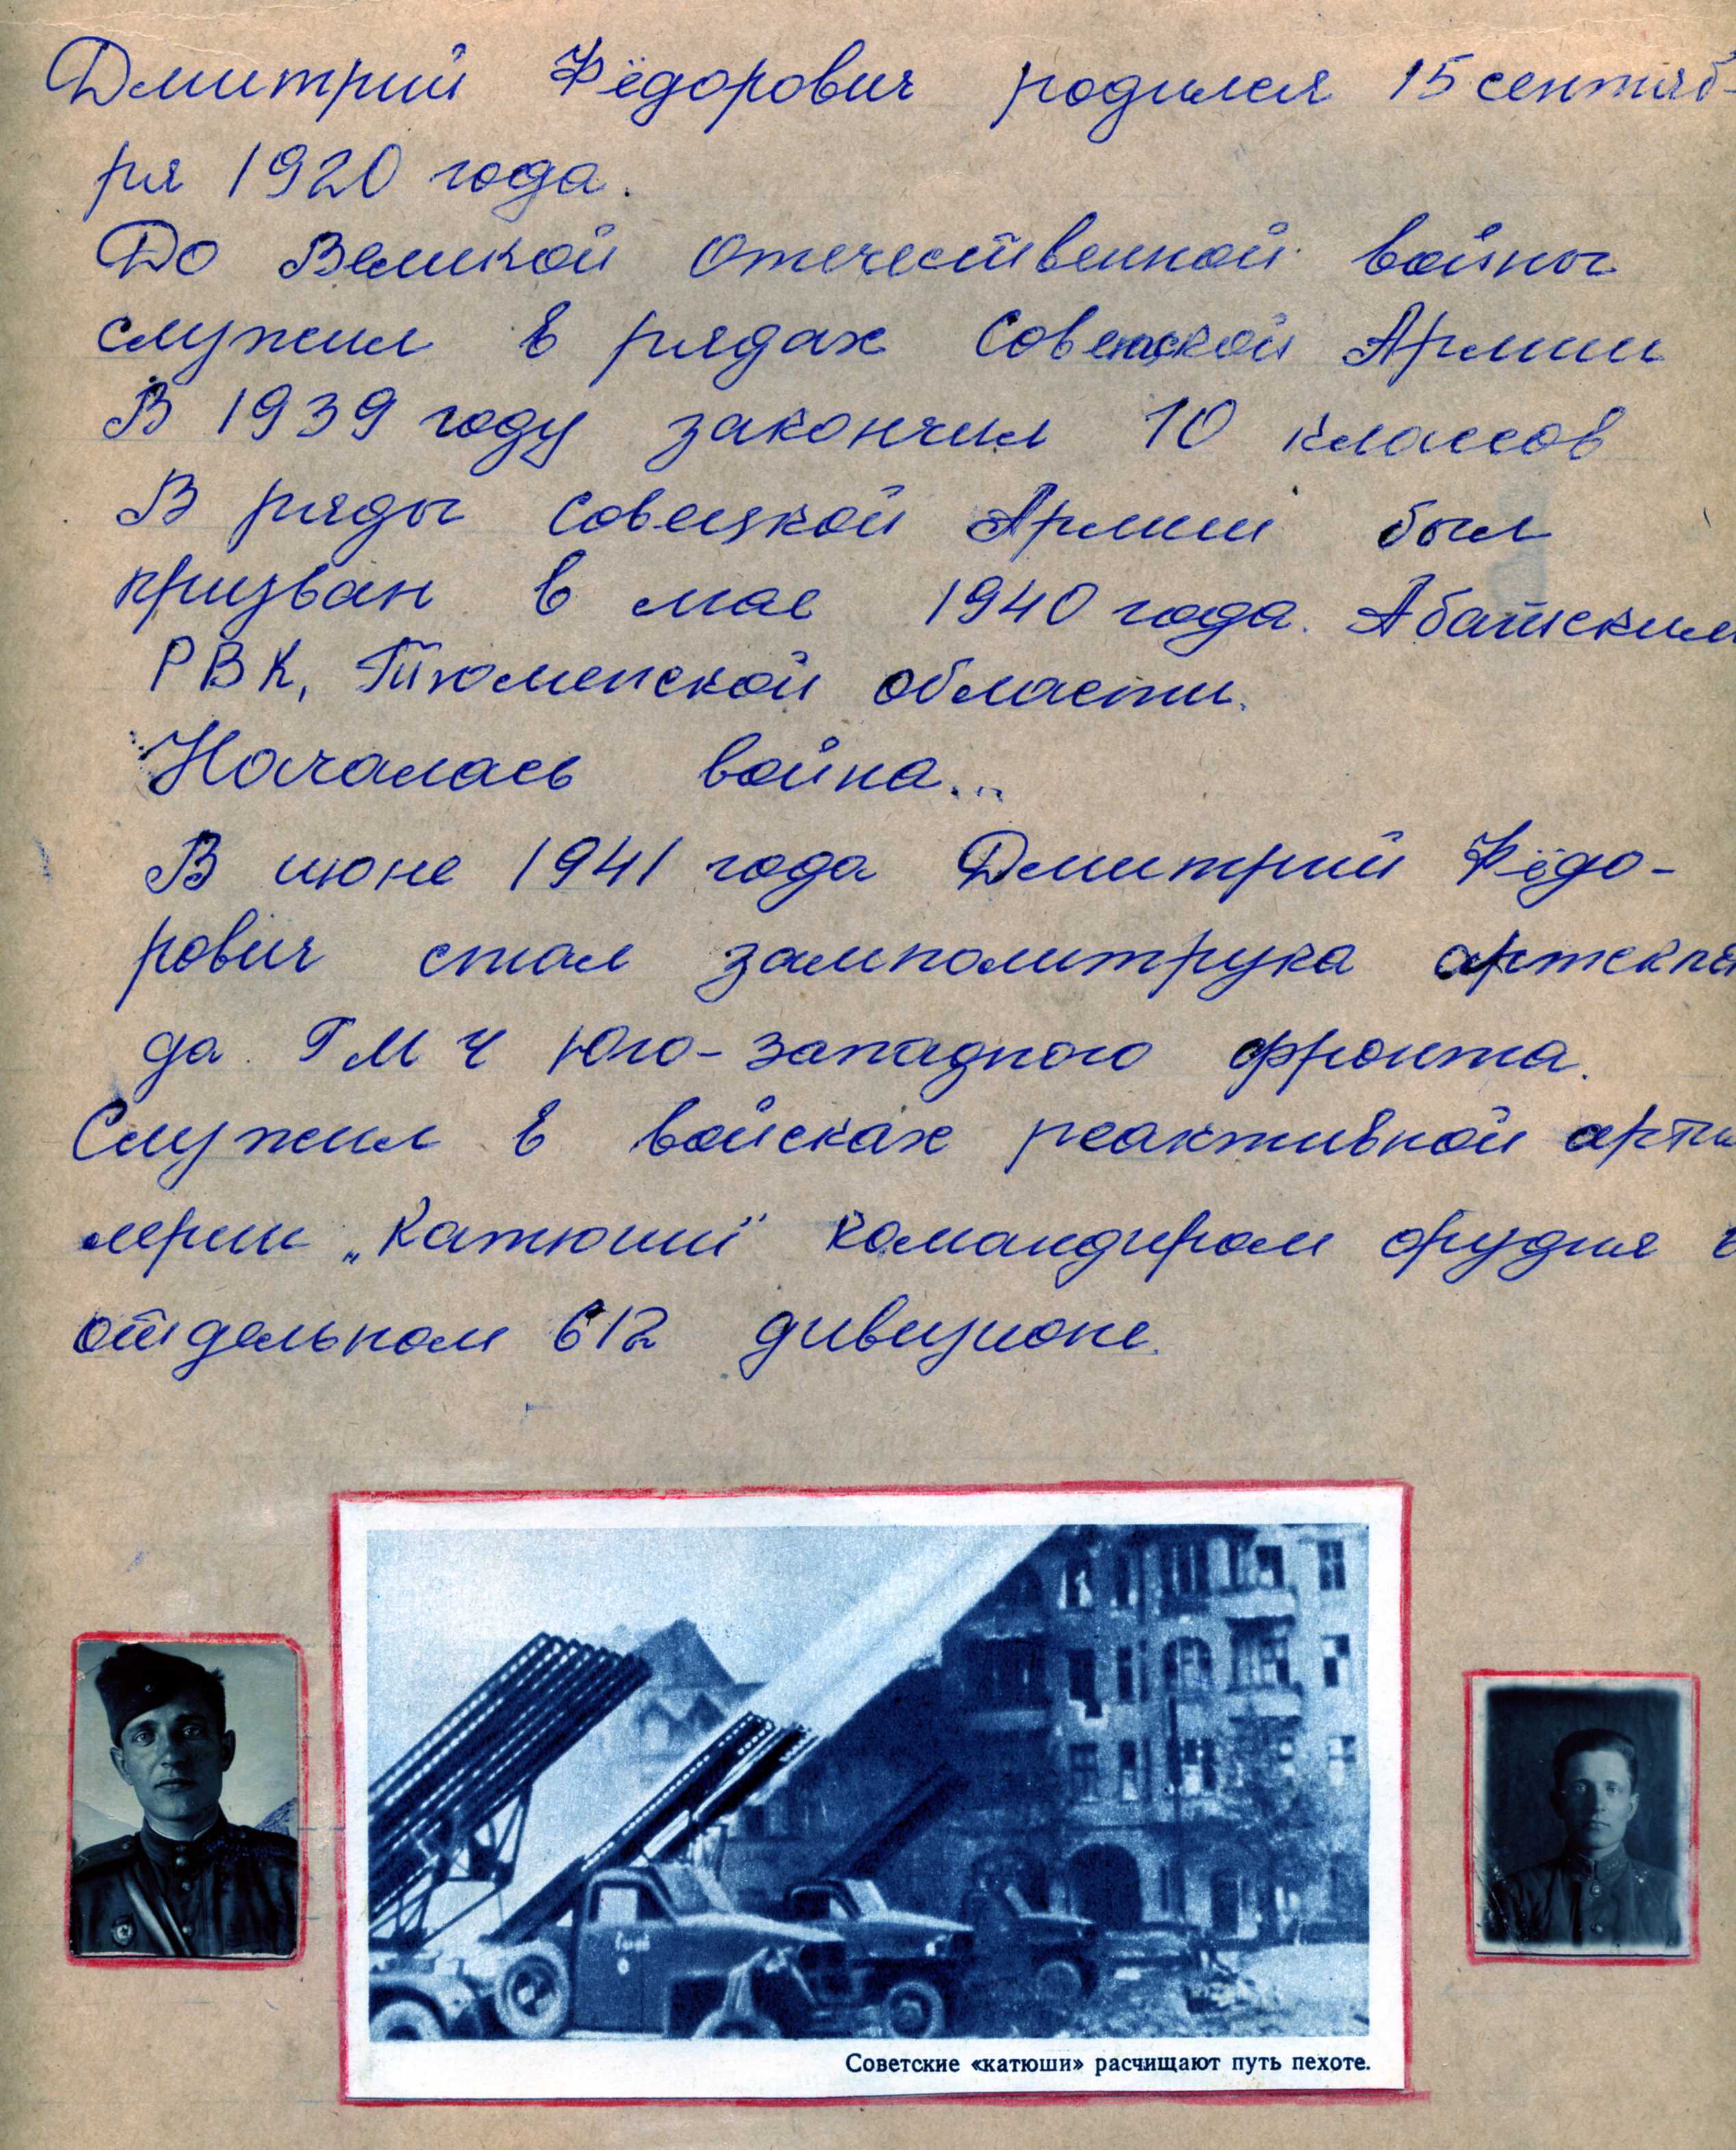 Дмитрий Фёдорович родился 15 сентяб-
ря 1920 года.
До Великой Отечественной войны
служил в рядах Советской Армии
В 1939 году закончил 10 классов
В ряды Совецкой Армии был
призван в мае 1940 года. Абатским
РВК, Тюменской области.
Началась война...
В июне 1941 года Дмитрий Фёдо-
рович стал замполитрука
да ГМЧ Юго-западного фронта.
Служил в войсках реактивной арти
лерии "Катюши" командиром орудия в
отдельном 612 дивизионе.
Советские «катюши» расчищают путь пехоте.